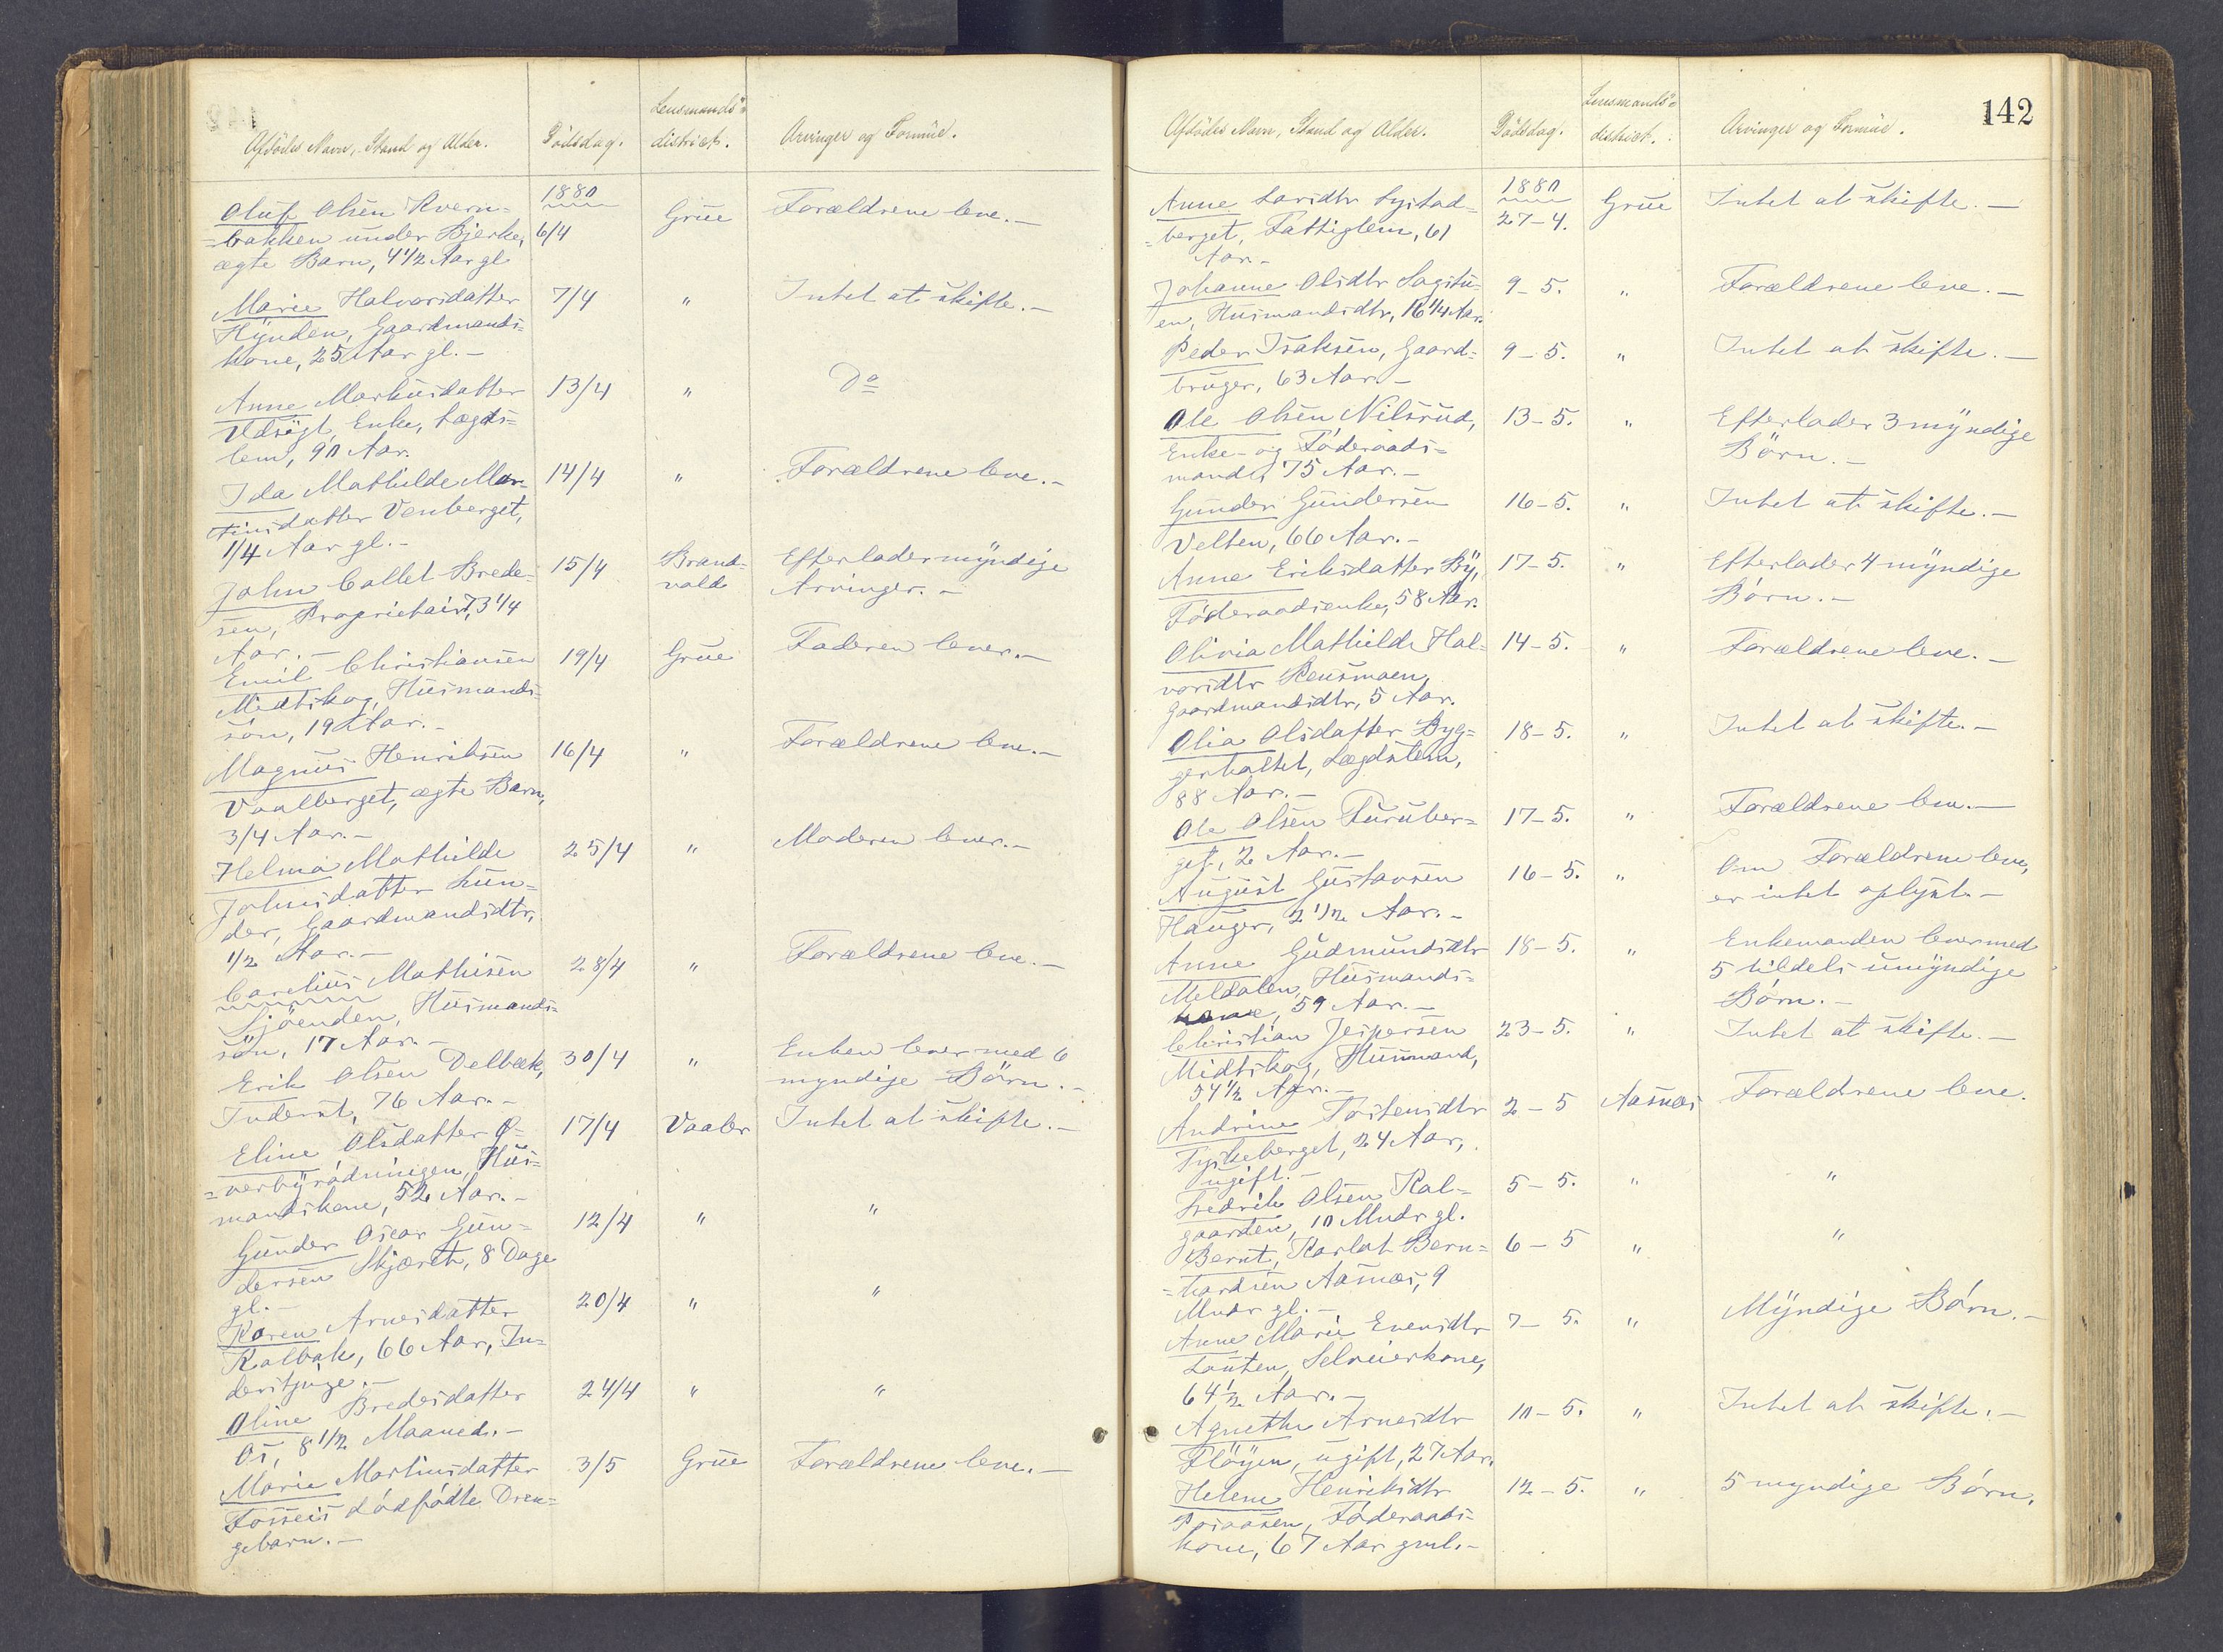 Afdødes Navn, Stand og Alder.
Dødsdag.
Lensmands=
district.
Arvinger og Formue.
Oluf Olsen Kvern=
=bakken under Bjerke,
ægte Barn, 4 1/2 Aar gl.
1880
6/4
Grue
Forældrene leve.-
Marie Halvorsdatter
Hynden, Gaardmands=
kone, 25 Aar gl.-
7/4
"
Intet at skifte.-
Anne Markusdatter
Udsigt, Enke, Lægds=
lem, 90 Aar.
13/4
"
Do
Ida Mathilde Mar=
tinsdatter Venberget,
1/4 Aar gl.-
14/4
"
Forældrene leve.-
John Collet Brede=
sen, Proprietair, 73 1/4
Aar.-
15/4
Brand=
vold
Efterlader myndige
Arvinger.-
Emil Christiansen
Midtskog, Husmands=
søn, 19 Aar.-
19/4
Grue
Faderen lever.-
Magnus Henriksen
Vaalberget, ægte Barn,
3/4 Aar.-
16/4
"
Forældrene leve.-
Helma Mathilde
Johnsdatter Lun=
der, Gaardmandsdtr,
1/2 Aar.-
25/4
"
Moderen lever.-
Carelius Mathisen
Sjøenden, Husmands=
søn, 17 Aar.-
28/4
"
Forældrene leve.-
Erik Olsen Delbæk,
Inderst, 76 Aar.-
30/4
"
Enken lever med 6
myndige Børn.-
Eline Olsdatter O=
=verbyrødningen, Hus=
mandskone, 52 Aar.-
17/4
Vaaler
Intet at skifte.-
Gunder Oscar Gun=
dersen Skjæreth, 8 Dage
gl.-
12/4
"
"
Karen Arnesdatter
Kalbak, 66 Aar, In=
derstpige.-
20/4
"
"
Oline Bredesdatter
Os, 8 1/2 Maaned.-
24/4
"
"
Marie Martinsdatter
Fosseis dødfødte Dren=
gebarn.-
3/5
Grue
Forældrene leve.-
142
Afdødes Navn, Stand og Alder.
Dødsdag.
Lensmands=
district.
Arvinger og Formue.
Anne Larsdtr Lystad=
=berget, Fattiglem, 61
Aar.-
1880
27-4.
Grue
Intet at skifte.-
Johanne Olsdtr Sagstu=
en, Husmandsdtr, 16 1/4 Aar.
9-5.
"
Forældrene leve.-
Peder Isaksen, Gaard=
bruger, 63 Aar.-
9-5.
"
Intet at skifte.-
Ole Olsen Nilsrud,
Enke- og Føderaads=
mand, 75 Aar.-
13-5.
"
Efterlader 3 myndige
Børn.-
Gunder Gundersen
Velten, 66 Aar.-
16-5.
"
Intet at skifte.-
Anne Eriksdatter By,
Føderaadsenke, 58 Aar.
17-5.
"
Efterlader 4 myndige
Børn.-
Olivia Mathilde Hal=
vorsdtr Rensmoen,
Gaardmandsdtr, 5 Aar.
14-5.
"
Forældrene leve.-
Olia Olsdatter Byg=
gerholtet, Lægdslem,
88 Aar.-
18-5.
"
Intet at skifte.-
Ole Olsen Furuber=
get, 2 Aar.-
17-5.
"
Forældrene leve.-
August Gustavsen
Hauger, 2 1/2 Aar.-
16-5.
"
Om Forældrene leve,
er intet oplyst.-
Anne Gudmundsdtr
Meldalen, Husmands=
kone, 59 Aar.-
18-5.
"
Enkemanden lever med
5 tildels umyndige
Børn.-
Christian Jespersen
Midtskog, Husmand,
54 1/2 Aar.-
23-5.
"
Intet at skifte.-
Andrine Torstensdtr
Tyskeberget, 24 Aar,
ugift.-
2-5
Aasnes
Forældrene leve.
Fredrik Olsen Kal=
gaarden, 10 Mndr gl.
5-5.
"
"
Bernt, Karlot Bern=
=hardsen Aasnæs, 9
Mndr gl.-
6-5
"
"
Anne Marie Evensdtr
Lauten, Selveierkone,
64 1/2 Aar.-
7-5.
"
Myndige Børn.-
Agnethe Arnesdtr
Fløyen, ugift, 27 Aar.
10-5.
"
Intet at skifte.-
Helene Henriksdtr
Føderaads=
kone, 67 Aar gml.-
12-5.
"
5 myndige Børn.